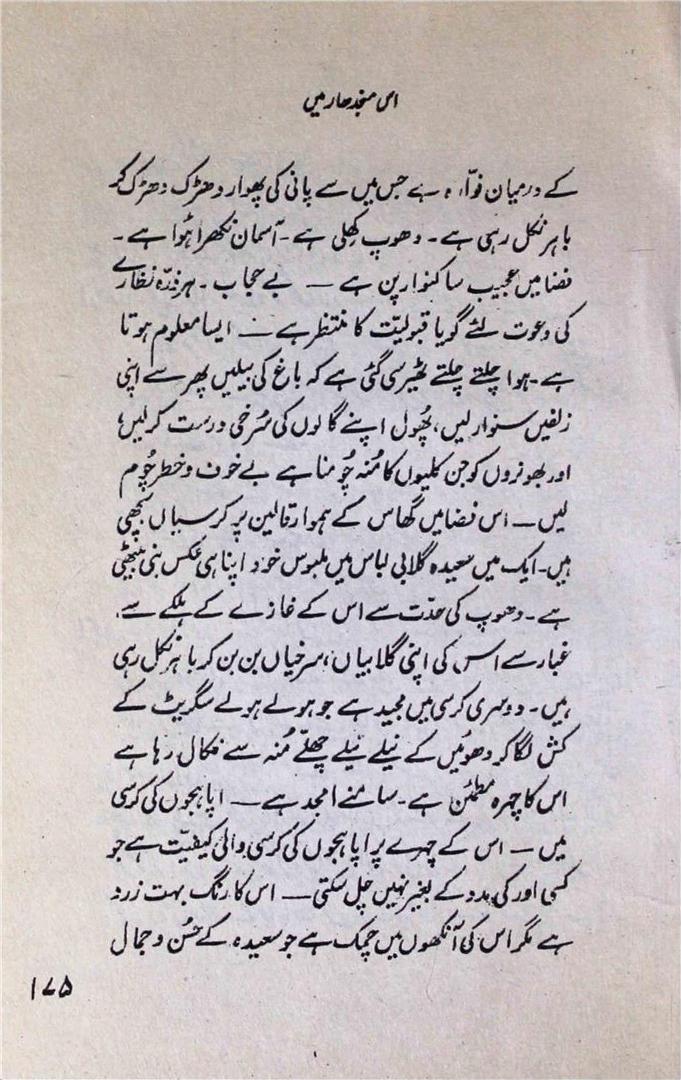 اس منجدھار میں
کے درمیان فوّارہ ہے جس میں سے پانی کی پھوار دھڑک دھڑک کر
باہر نکل رہی ہے۔ دھوپ کِھلی ہے۔ آسمان نکھرا ہُوا ہے۔
فضا میں عجیب سا کنوارپن ہے — بے حجاب۔ ہر ذرّہ نظارے
کی دعوت لئے گویا قبولیّت کا منتظر ہے — ایسا معلوم ہوتا
ہے۔ ہوا چلتے چلتے ٹھیر سی گئی ہے کہ باغ کی بیلیں پھر سے اپنی
زلفیں سنوار لیں، پُھول اپنے گالوں کی سُرخی درست کر لیں؛
اور بھونروں کو جن کلیوں کا مُنہ چُومنا ہے بے خوف و خطر چُوم
لیں — اس فضا میں گھاس کے ہموار قالین پر کرسیاں بچھی
ہیں۔ ایک میں سعیدہ گلابی لباس میں ملبوس خود اپنا ہی عکس بنی بیٹھی
ہے۔ دھوپ کی حدّت سے اس کے غازے کے ہلکے سے
غبار سے اس کی اپنی گلابیاں، سرخیاں بن بن کر باہر نکل رہی
ہیں۔ دوسری کرسی میں مجید ہے جو ہولے ہولے سگریٹ کے
کش لگا کر دھوئیں کے نیلے نیلے چھلّے مُنہ سے نکال رہا ہے
اس کا چہرہ مطمئن ہے۔ سامنے امجد ہے — اپاہجوں کی کرسی
میں — اس کے چہرے پر اپاہجوں کی کرسی والی کیفیّت ہے جو
کسی اور کی مدد کے بغیر نہیں چل سکتی — اس کا رنگ بہت زرد
ہے مگر اس کی آنکھوں میں چمک ہے جو سعیدہ کے حُسن و جمال
۱۷۵